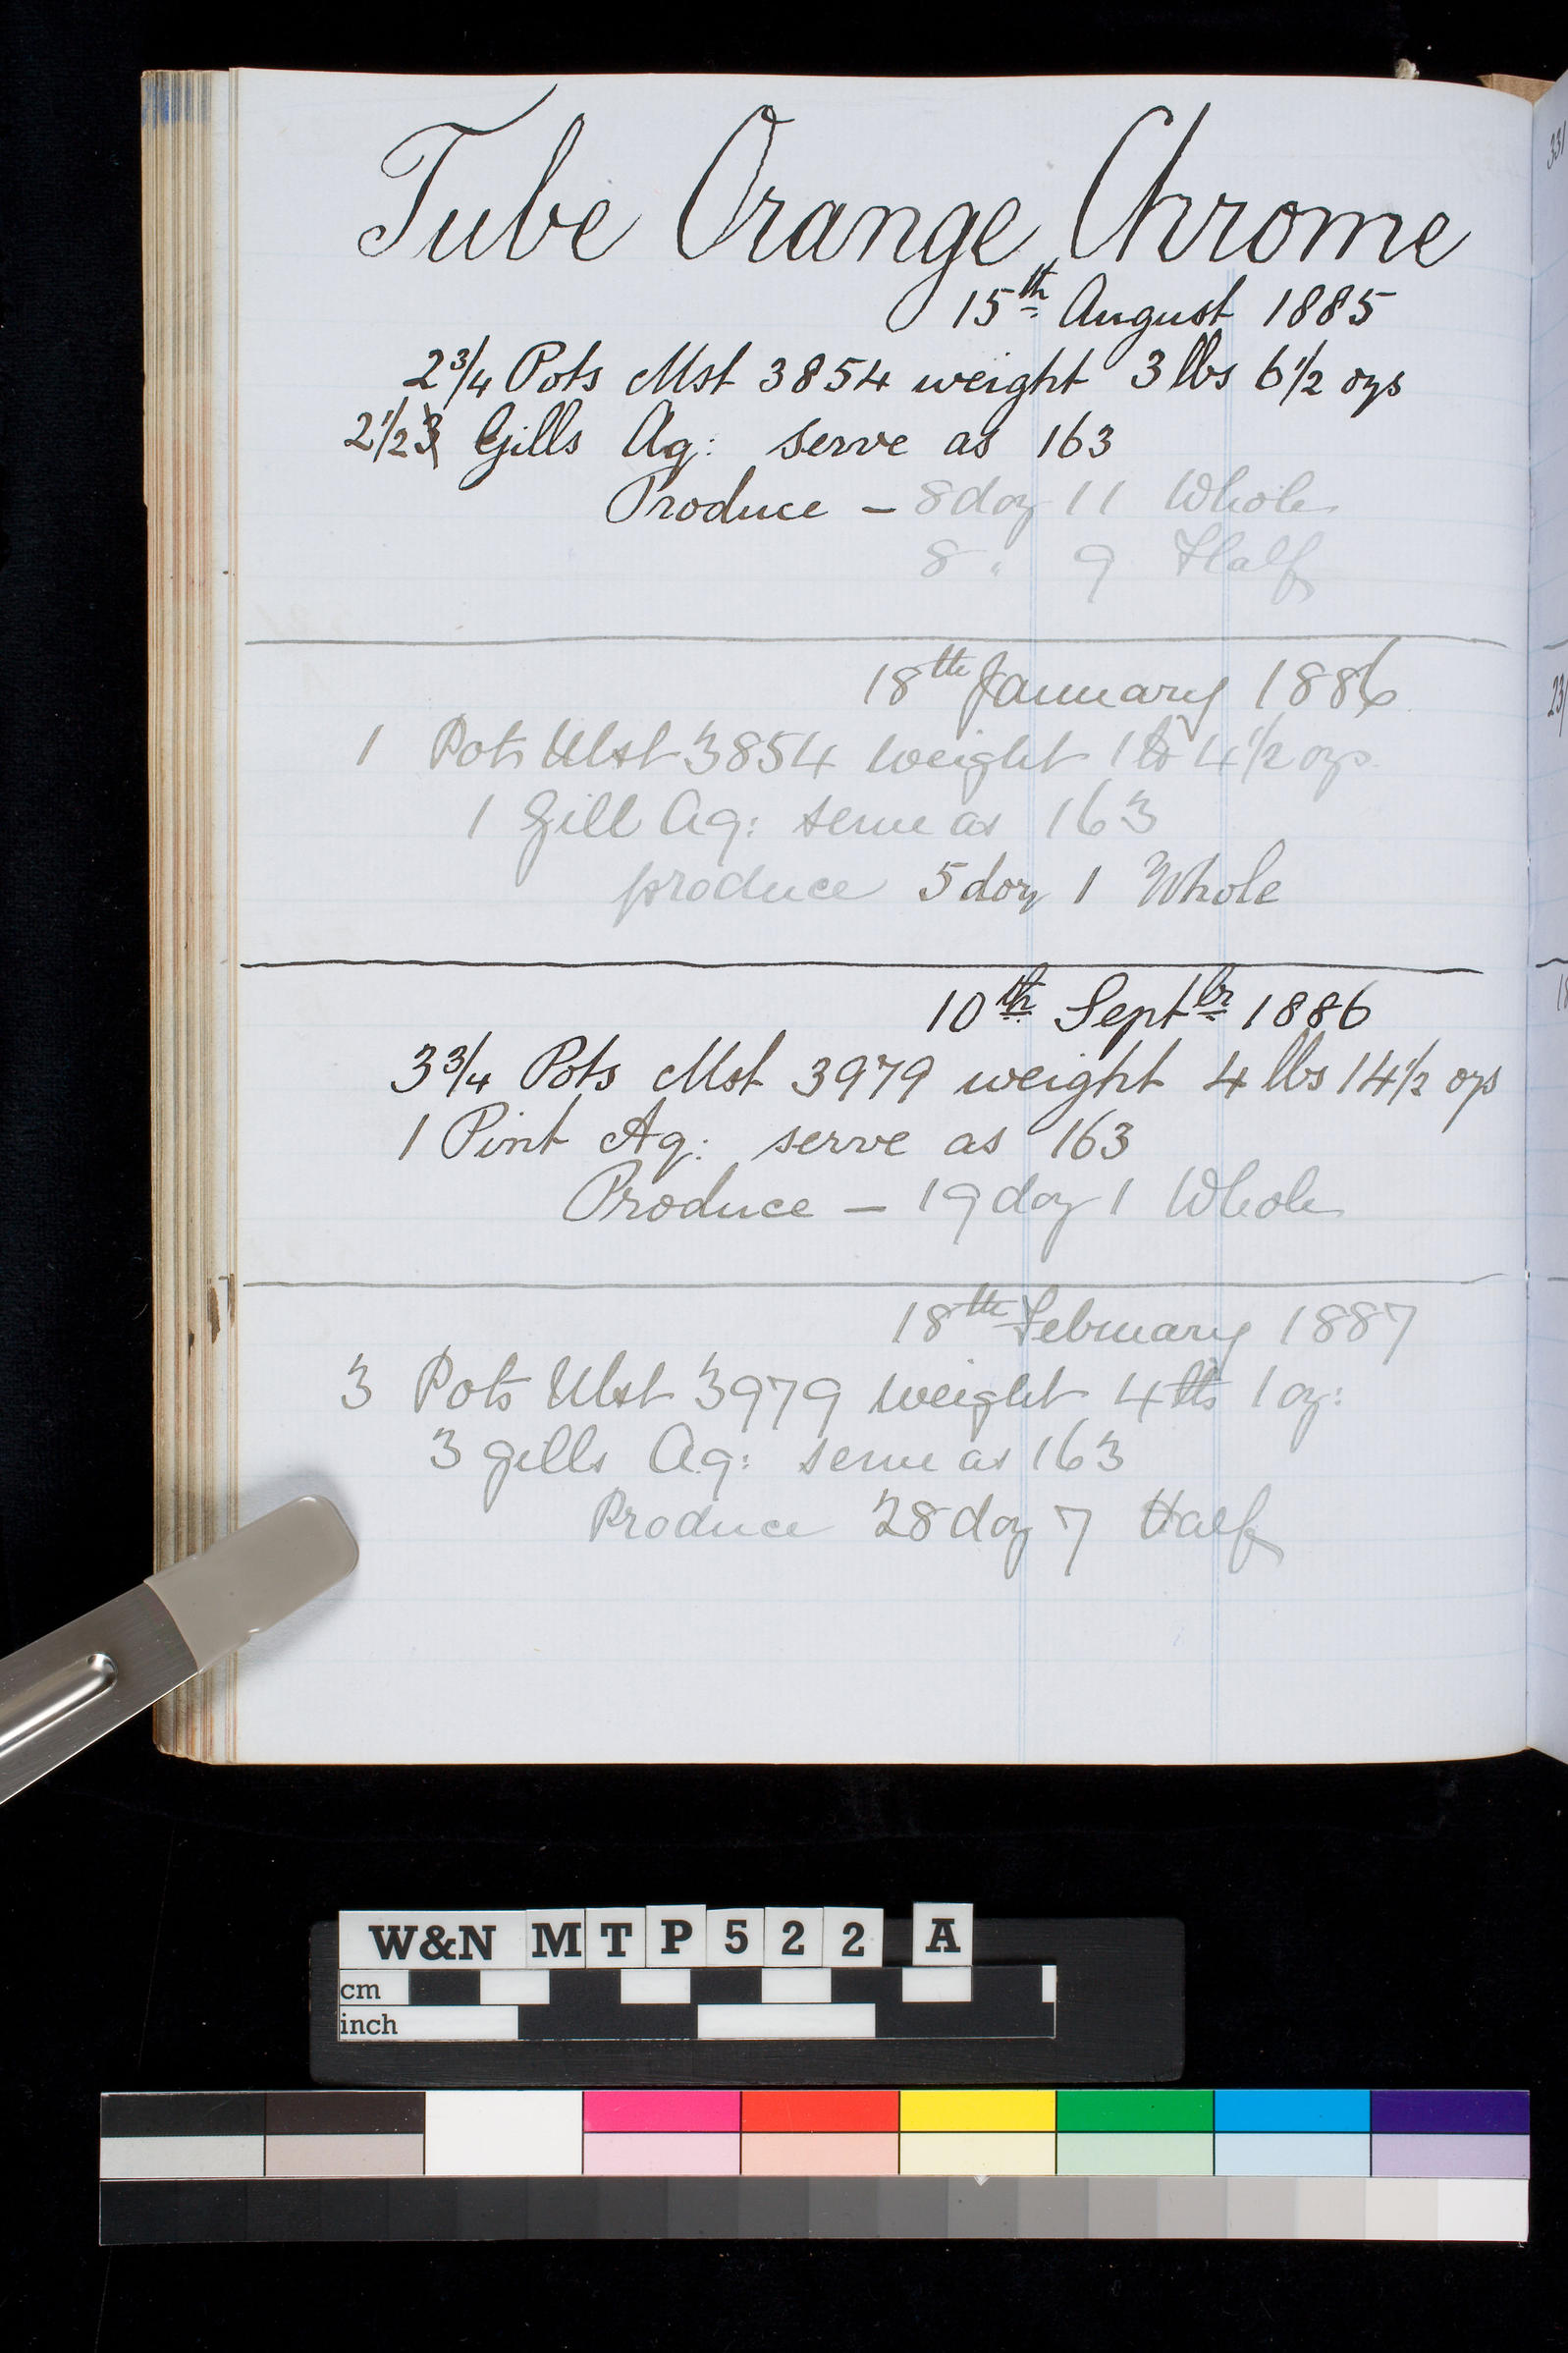 Tube Orange Chrome
15th August 1885
2 3/4 Pots Mst 3854 weight 3 lbs 6 1/2 ozs
2 1/2 3 Gills Aq: serve as 163
Produce — 8 doz 11 Whole
8 " 9 Half
18th January 1886
1 Pots Mst 3854 weight 1 lb 4 1/2 ozs
1 Gill Aq: serve as 163
produce 5 doz 1 Whole
10th Septbr 1886
3 3/4 Pots Mst 3979 weight 4 lbs 14 1/2 ozs
1 Pint Aq: serve as 163
Produce — 19 doz 1 Whole
18th February 1887
3 Pots Mst 3979 weight 4 lbs 1 oz:
3 gills Aq: serve as 163
Produce 28 doz 7 Half
W&N MTP522 A
cm
inch